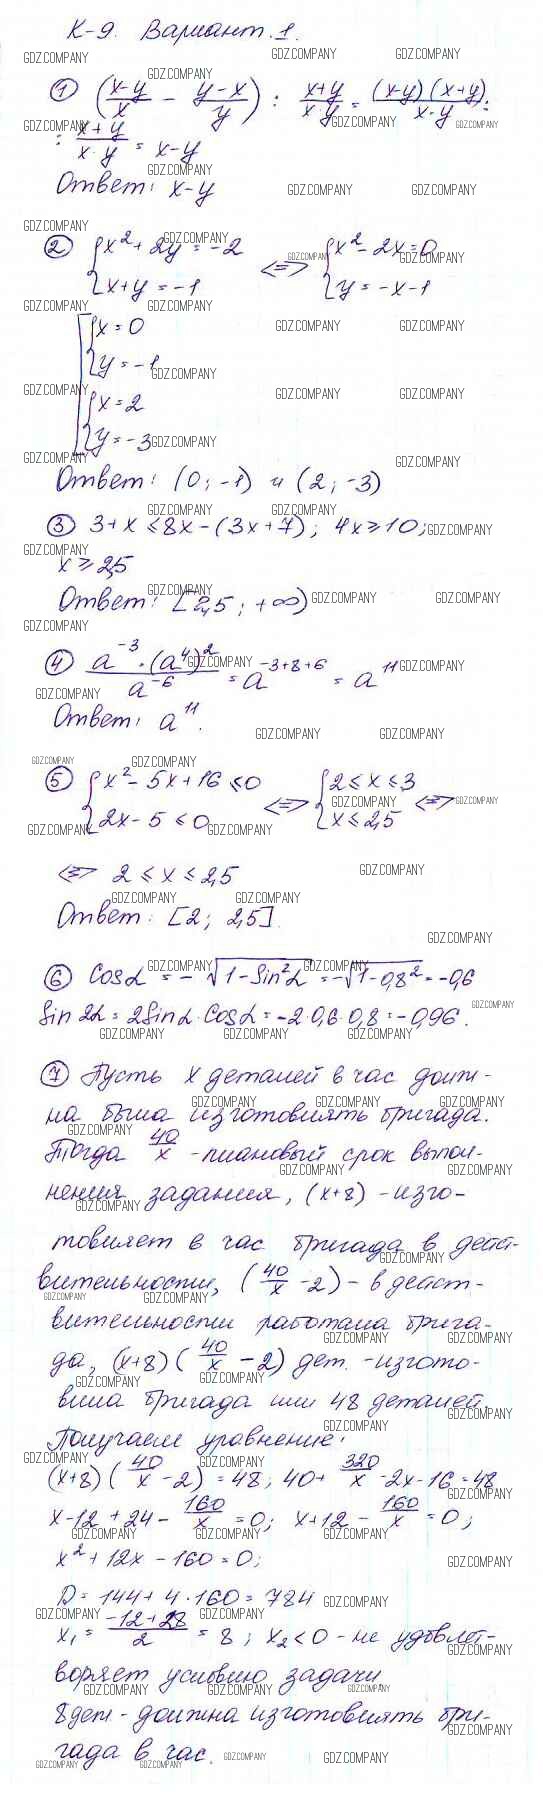 К-9. Вариант 1.
① ((x-y)/x - (y-x)/y) : (x+y)/(x·y) = (x-y)(x+y)/(x·y) :
: (x+y)/(x·y) = x-y
Ответ: x-y
② {x² + 2y = -2 <=> {x² - 2x = 0
{x+y = -1 {y = -x-1
[{x = 0
{y = -1
{x = 2
{y = -3
Ответ: (0; -1) и (2; -3)
③ 3+x ≤ 8x-(3x+7); 4x ≥ 10;
x ≥ 2,5
Ответ: [2,5; +∞)
④ (a⁻³·(a⁴)²)/a⁻⁶ = a⁻³⁺⁸⁺⁶ = a¹¹
Ответ: a¹¹.
⑤ {x² - 5x + 16 ≤ 0 <=> {2 ≤ x ≤ 3 <=>
{2x - 5 ≤ 0 {x ≤ 2,5
<=> 2 ≤ x ≤ 2,5
Ответ: [2; 2,5].
⑥ Cosα = -√(1-Sin²α) = -√(1-0,8²) = -0,6
Sin2α = 2Sinα·Cosα = -2·0,6·0,8 = -0,96.
⑦ Пусть x деталей в час долж-
на была изготовлять бригада.
Тогда 40/x - плановый срок выпол-
нения задания, (x+8) - изго-
товляет в час бригада в дейст-
вительности, (40/x - 2) - в дейст-
вительности работала брига-
да, (x+8)(40/x - 2) дет. - изгото-
вила бригада или 48 деталей.
Получаем уравнение:
(x+8)(40/x - 2) = 48; 40 + 320/x - 2x - 16 = 48
x - 12 + 24 - 160/x = 0; x + 12 - 160/x = 0;
x² + 12x - 160 = 0;
D = 144 + 4·160 = 784
x₁ = (-12+28)/2 = 8; x₂ < 0 - не удовлет-
воряет условию задачи
8 дет - должна изготовлять бри-
гада в час.
GDZ.COMPANY